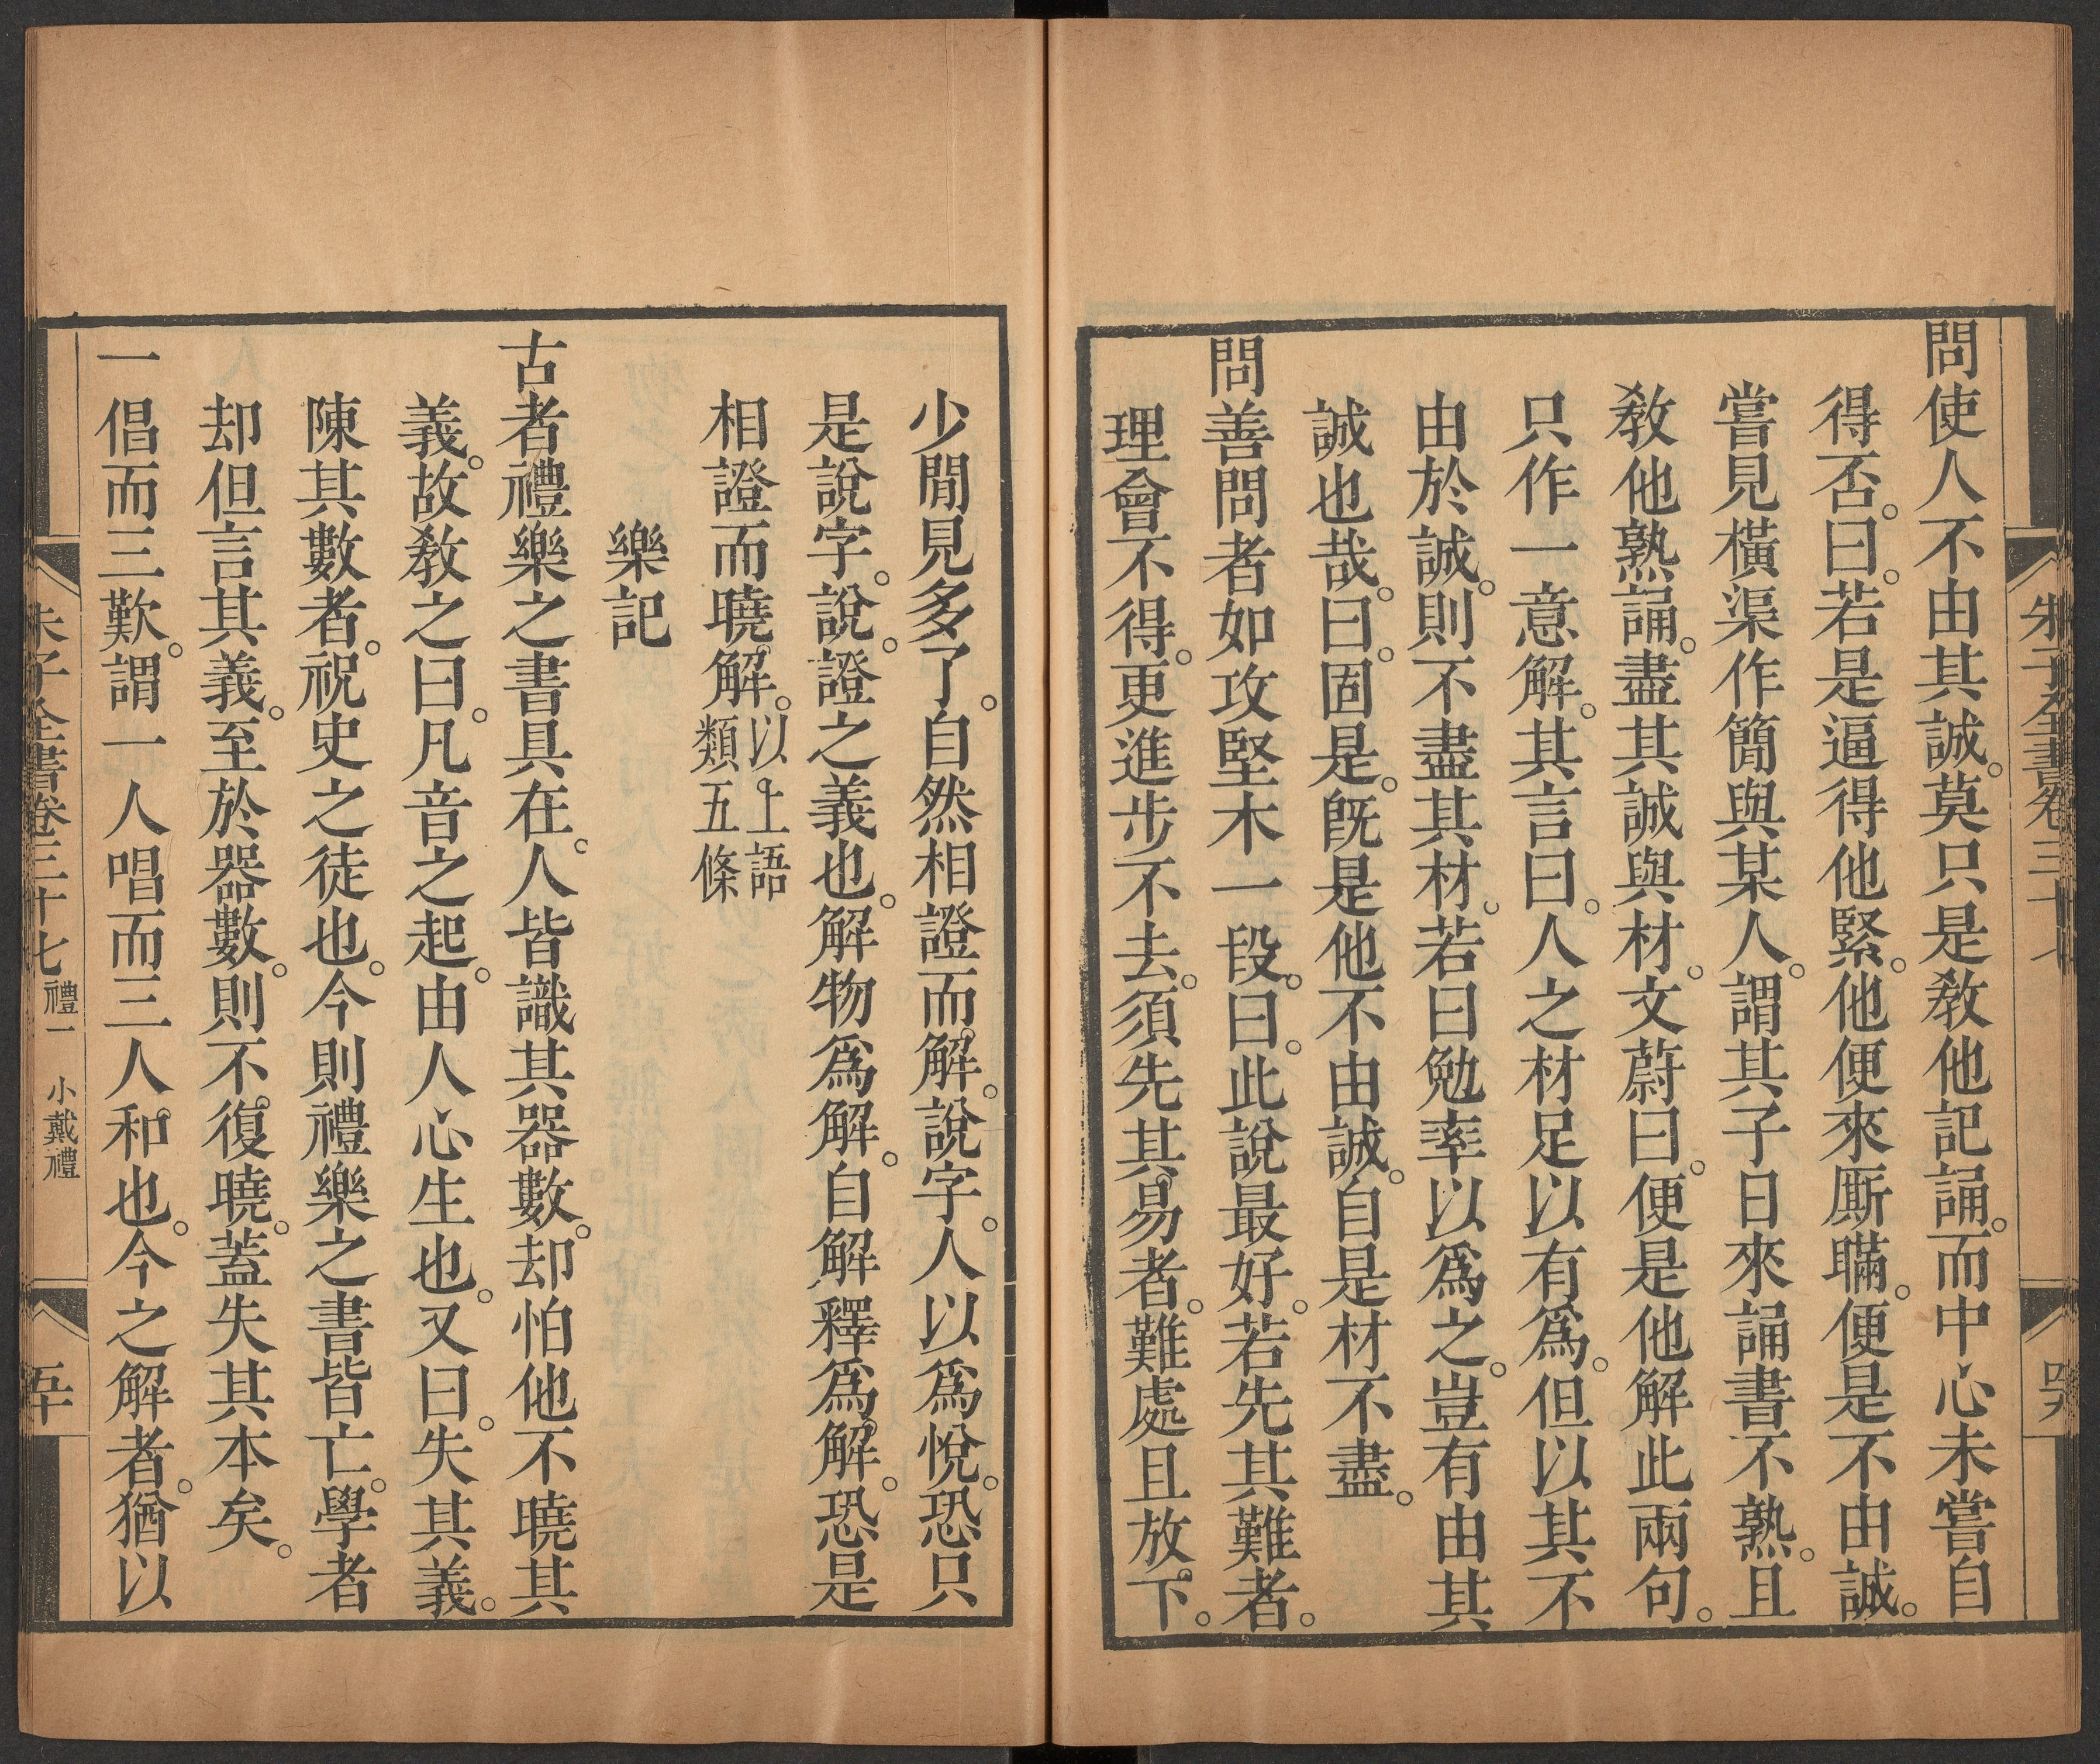 問使人不由其誠。莫只是敎他記誦。而中心未嘗自
得否。曰。若是逼得他緊。他便來厮瞞。便是不由誠。
嘗見橫渠作簡與某人。謂其子日來誦書不熟。且
敎他熟誦。盡其誠與材。文蔚曰。便是他解此兩句。
只作一意解。其言曰。人之材足以有爲。但以其不
由於誠。則不盡其材。若曰勉率以爲之。豈有由其
誠也哉。曰。固是。旣是他不由誠。自是材不盡。
問善問者如攻堅木一段。曰。此說最好。若先其難者。
理會不得。更進步不去。須先其易者。難處且放下。
朱子全書卷三十七
四九
少閒見多了。自然相證而解。說字。人以爲悅。恐只
是說字。說。證之義也。解物爲解。自解釋爲解。恐是
相證而曉解。以上語
類五條
樂記
古者禮樂之書具在。人皆識其器數。却怕他不曉其
義。故敎之曰。凡音之起。由人心生也。又曰。失其義。
陳其數者。祝史之徒也。今則禮樂之書皆亡。學者
却但言其義。至於器數。則不復曉。蓋失其本矣。
一倡而三歎。謂一人唱而三人和也。今之解者。猶以
朱子全書卷三十七 禮一 小戴禮
五十